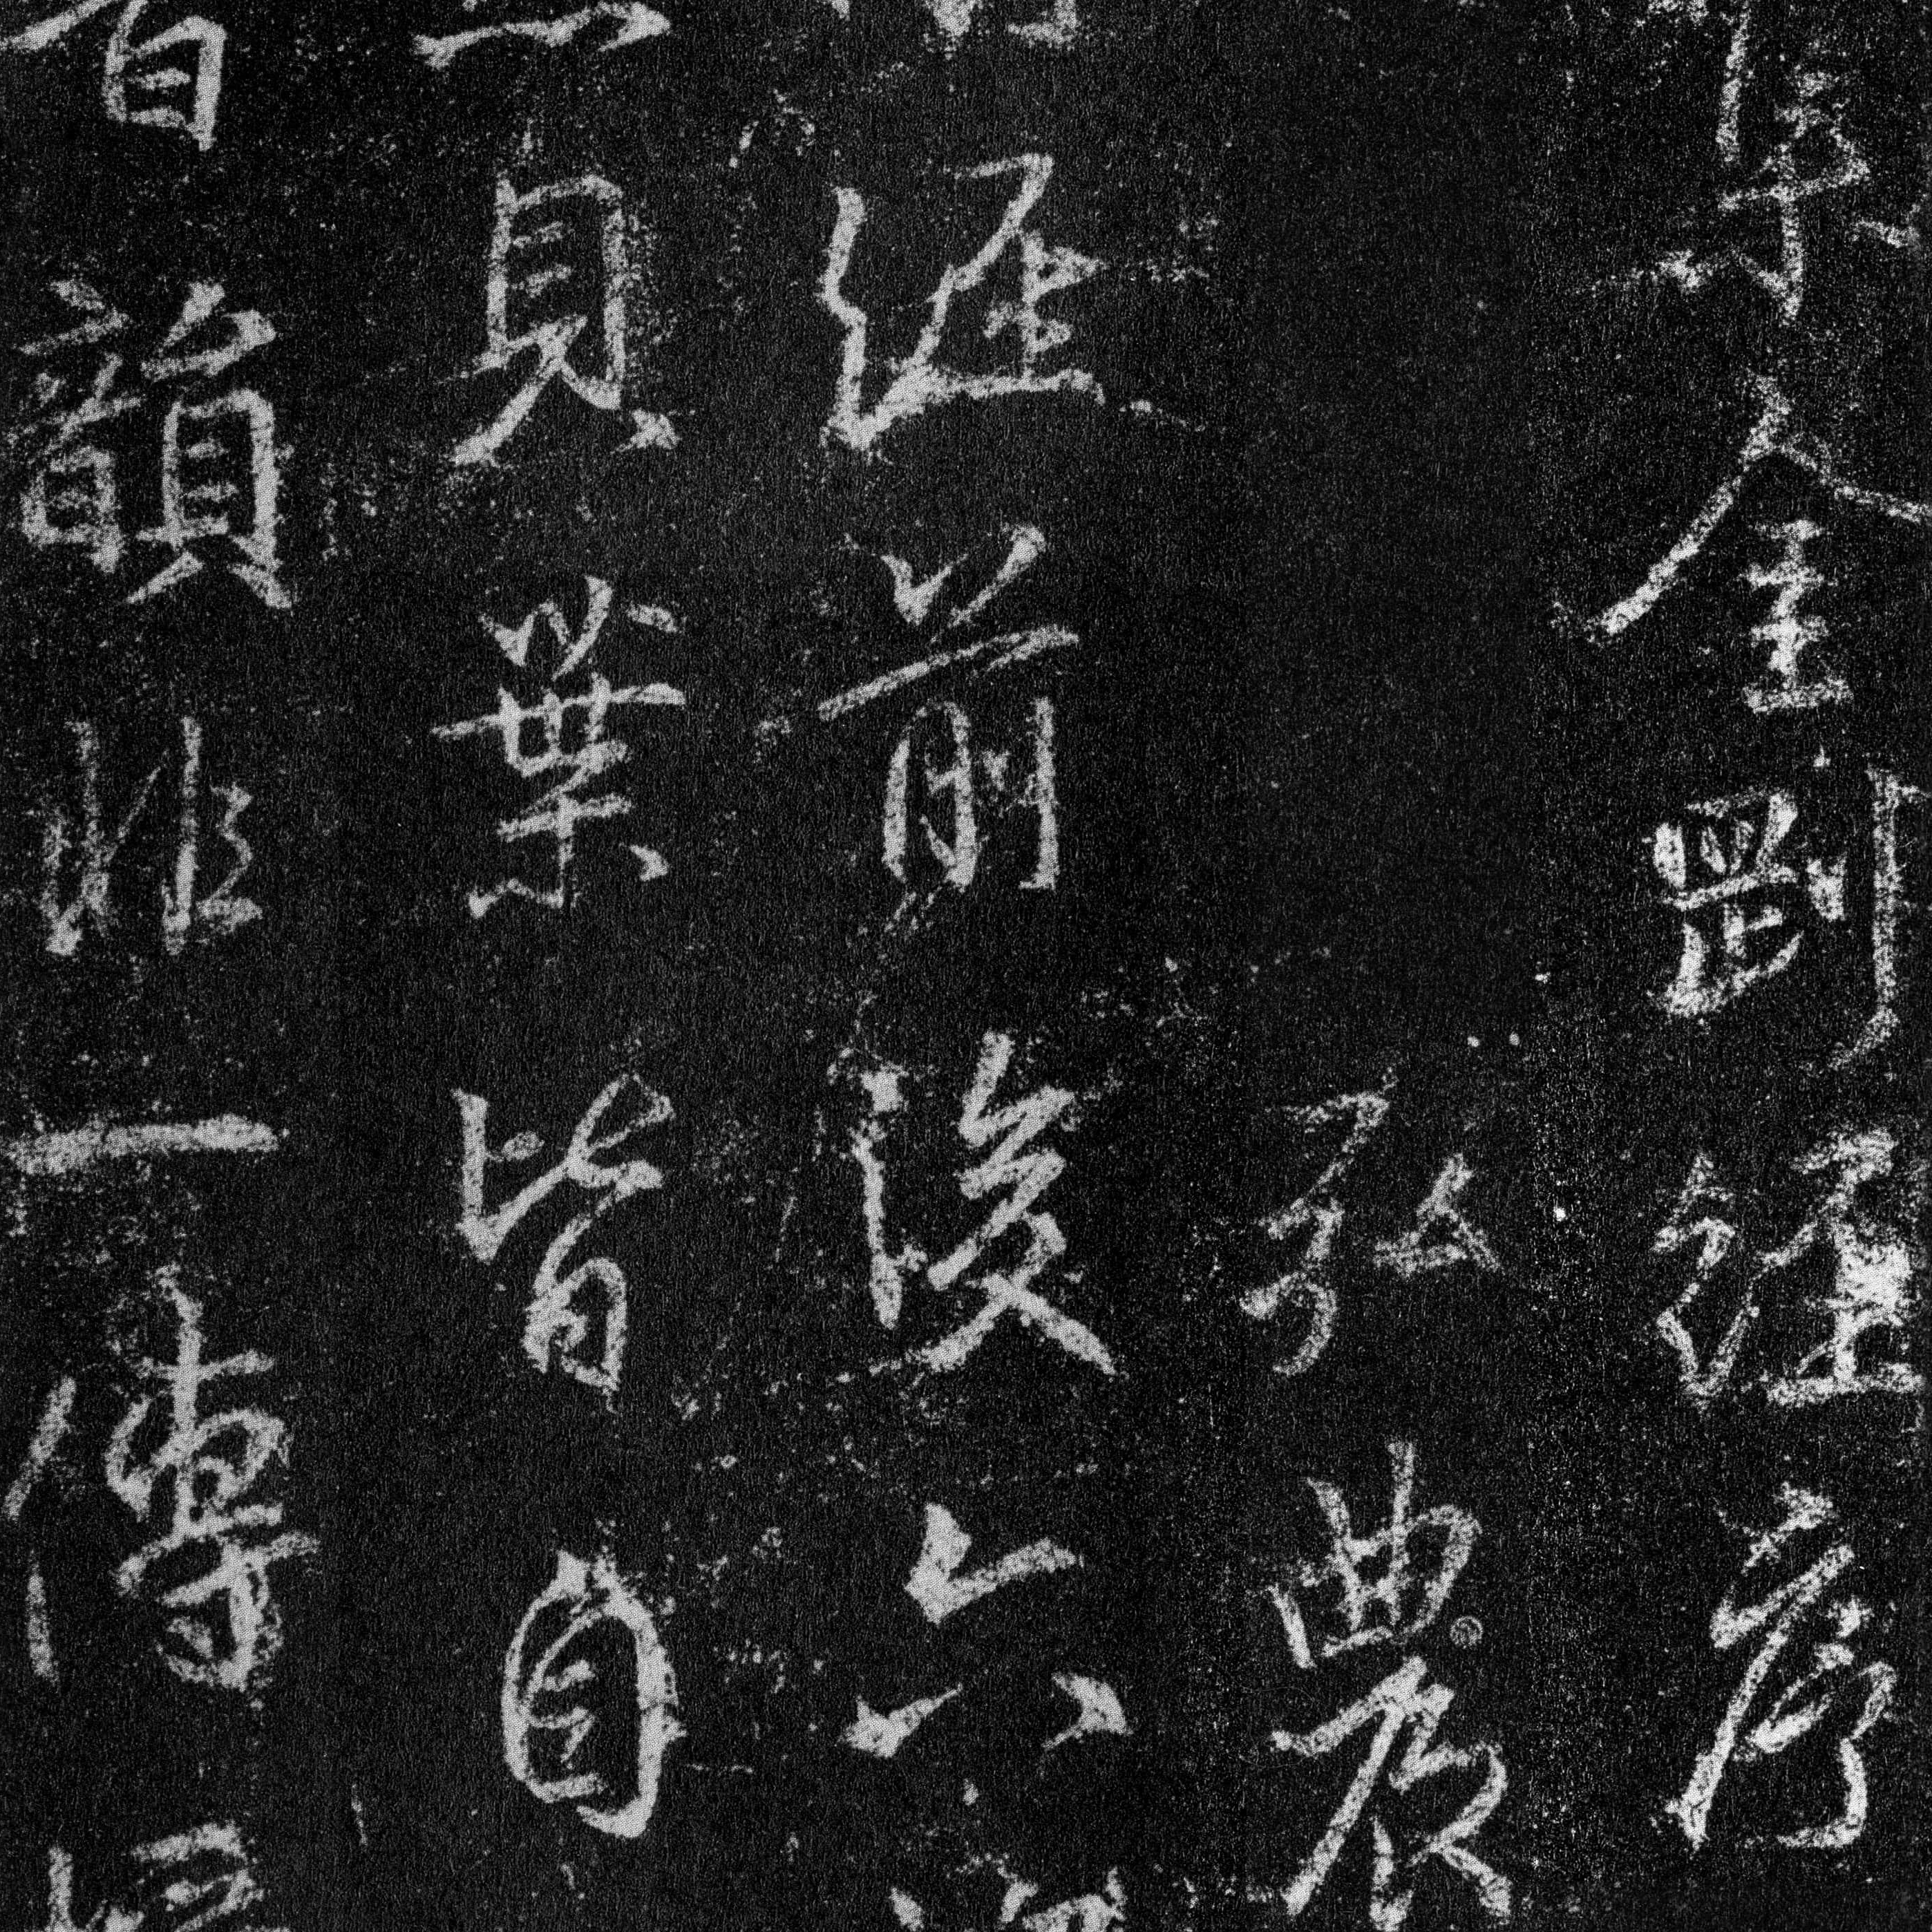 金剛經序
弘農
經前後六
貝葉皆自
韻非一傳